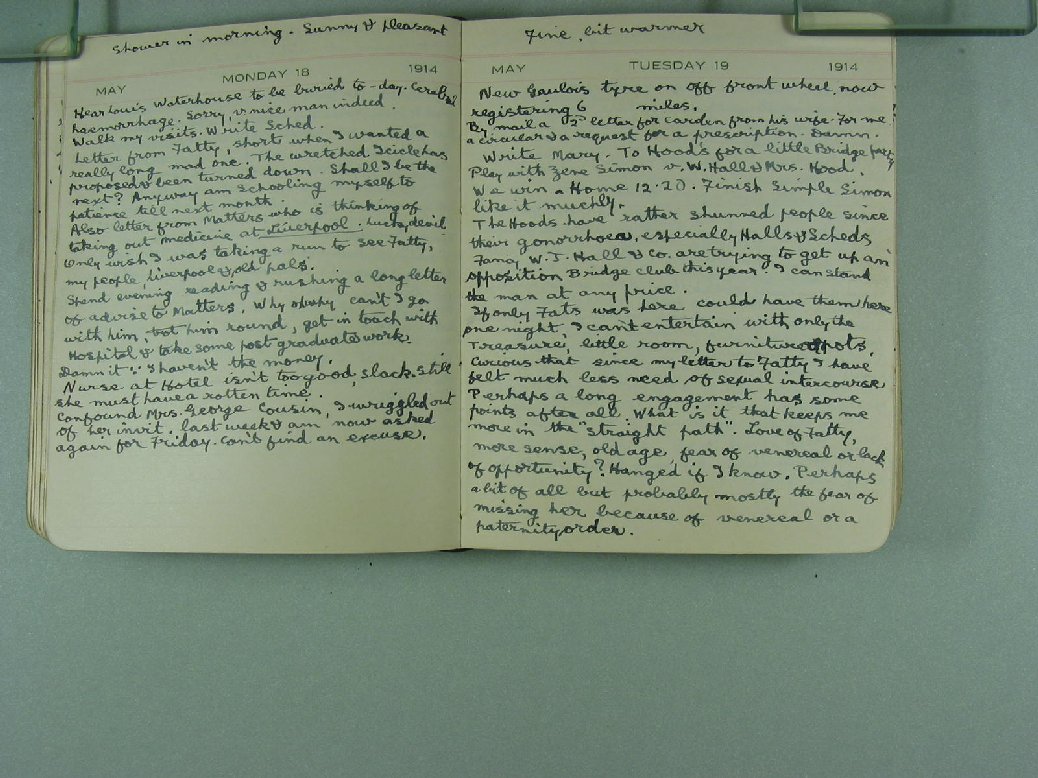 Shower in morning. Sunny & pleasant
MAY MONDAY 18 1914
Hear Louis Waterhouse to be buried to-day. Cerebral
haemorrhage. Sorry, v. nice man indeed.
Walk my visits. Write Sched.
Letter from Fatty, short when I wanted a
really long mad one. The wretched Icicle has
proposed & been turned down. Shall I be the
next? Anyway am schooling myself to
patience till next month.
Also letter from Matters who is thinking of
taking out medicine at Liverpool. Lucky devil
Only wish I was taking a run to see Fatty,
my people, Liverpool & old pals.
Spend evening reading & rushing a long letter
of advise to Matters. Why oh why can't I go
with him, trot him round, get in touch with
Hospital & take some post graduate work.
Damn it ∵ I haven't the money.
Nurse at Hotel isn't too good, slack. Still
she must have a rotten time.
Confound Mrs. George Cousin, I wriggled out
of her invit. last week & am now asked
again for Friday. Can't find an excuse.
Fine, bit warmer
MAY TUESDAY 19 1914
New Gaulois tyre on off front wheel, now
registering 6 miles.
By mail a letter for Carden from his wife. For me
a circular & a request for a prescription. Damn.
Write Mary. To Hood's for a little Bridge party
Play with Zene Simon v. W. Hall & Mrs. Hood.
We win a Home 12.20. Finish Simple Simon
like it muchly.
The Hoods have rather shunned people since
their gonorrhoea, especially Halls & Scheds
Fancy W. J. Hall & Co. are trying to get up an
opposition Bridge club this year. I can stand
the man at any price.
If only Fats was here could have them here
one night, I can't entertain with only the
Treasure, little room, furniture & pots.
Curious that since my letter to Fatty I have
felt much less need of sexual intercourse
Perhaps a long engagement has some
points after all. What is it that keeps me
more in the "straight path". Love of Fatty,
more sense, old age, fear of venereal or lack
of opportunity? Hanged if I know. Perhaps
a bit of all but probably mostly the fear of
missing her because of venereal or a
paternity order.